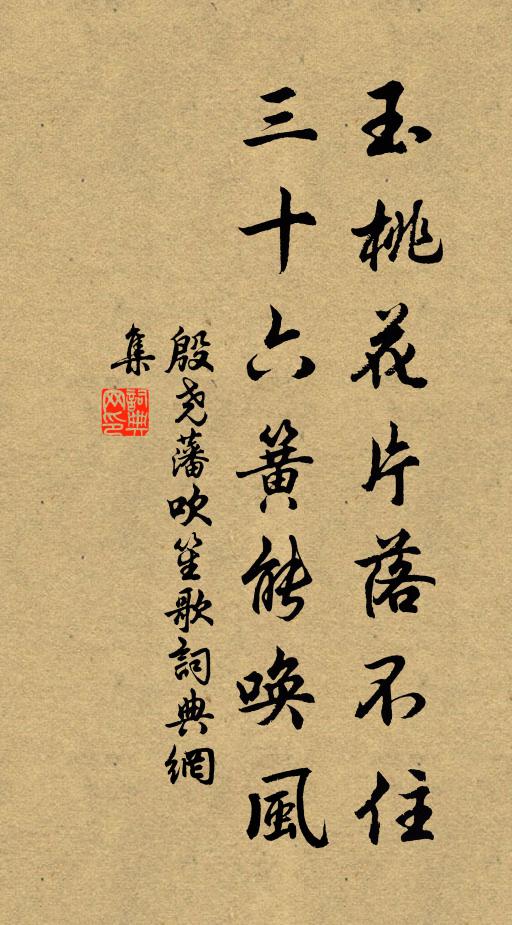 玉桃花片落不住
三十六簧能唤風
殷尧藩吹笙歌詞典網
集
詞典
网印